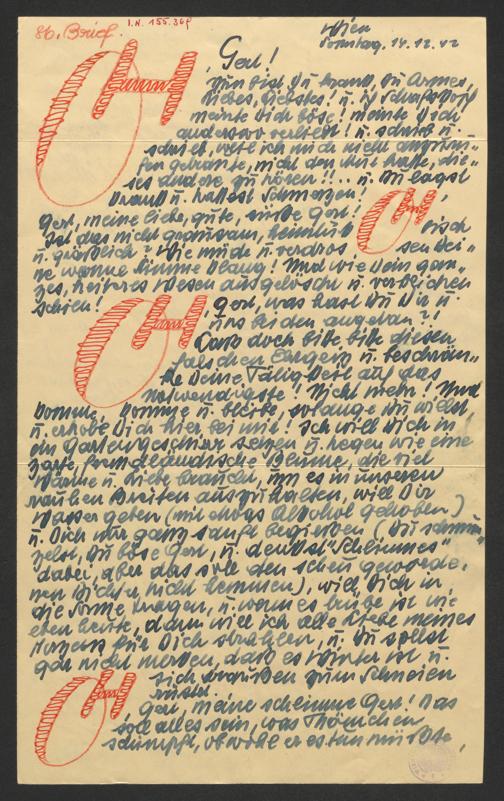 86. Brief.
I.N. 155.369
Wien
Sonntag. 14.12.42
OH, Gerl!
Nun bist Du krank, Du Armes,
liebes, liebstes! u. ich Schafskopf
meinte Dich böse! meinte Dich
anderswo verliebt! u. schrieb u.
schrieb, weil ich mich nicht anzuru-
fen getraute, nicht den Mut hatte, die-
ses andere zu hören!!.. u. Du lagst
krank u. hattest Schmerzen!
Gerl, meine liebe, gute, süße Gerl! OH,
Ist das nicht grausam, heimtückisch
u. gräßlich? Wie müde u. verdrossen Dei-
ne warme Stimme klang! Und wie Dein gan-
zes, heiteres Wesen ausgelöscht u. verblichen
schien!
OH, Gerl, was hast Du Dir u.
uns beiden angetan?!
Lass doch bitte bitte diesen
falschen Ehrgeiz u. beschrän-
ke Deine Tätigkeit auf das
notwendigste! Nicht mehr! Und
komme, komme u. bleibe, solange Du willst,
u. erhole Dich hier bei mir! Ich will Dich in
ein Gartengeschirr setzen u. hegen wie eine
zarte, fremdländische Blume, die viel
Wärme u. Liebe braucht, um es in unseren
rauhen Breiten auszuhalten, will Dir
Wasser geben (mit etwas Alkohol gehoben)
u. Dich nur ganz sanft begießen (Du schmun-
zelst, Du böse Gerl, u. denkst "Schlimmes"
dabei, aber das soll den schon gewordenen
Dichter nicht hemmen), will Dich in
die Sonne tragen, u. wenn es trübe ist wie
eben heute, dann will ich alle Liebe meines
Herzens für Dich strahlen, u. Du sollst
gar nicht merken, daß es Winter ist u.
sich draußen zum Schneien
rüstet.
OH, Gerl, meine schlimme Gerl! Das
soll alles sein, was
schimpft, obwohl er es tun müßte,